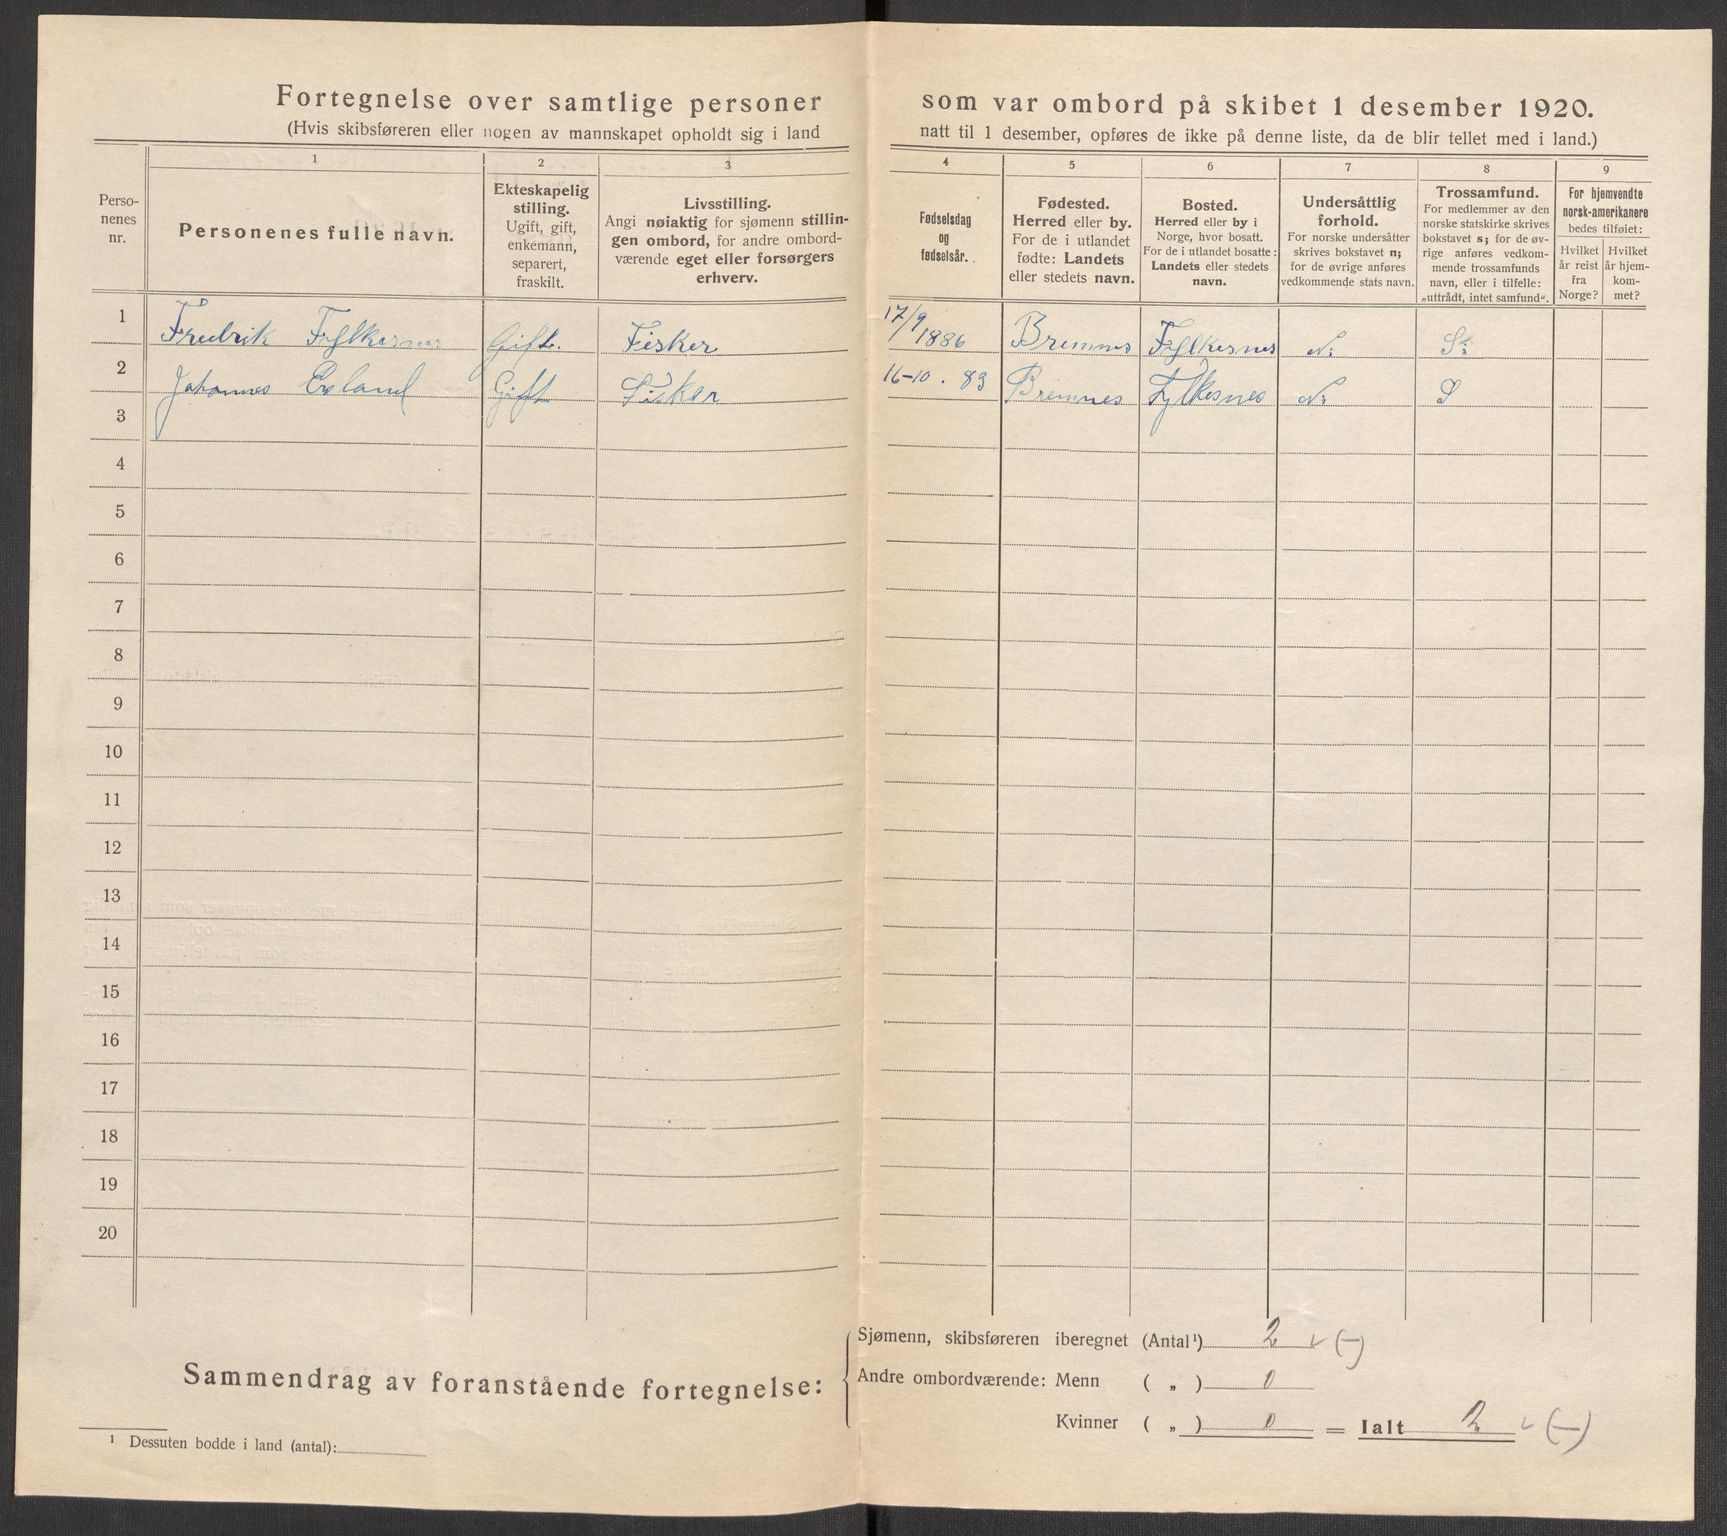 Fortegnelse over samtlige personer som var ombord på skibet 1 desember 1920.
(Hvis skibsføreren eller nogen av mannskapet opholdt sig i land natt til 1 desember, opføres de ikke på denne liste, da de blir tellet med i land.)
1 2 3 4 5 6 7 8 9
Perso-
nenes
nr.
Personenes fulle navn.
Ekteskapelig
stilling.
Ugift, gift,
enkemann,
separert,
fraskilt.
Livsstilling.
Angi nøiaktig for sjømenn stillin-
gen ombord, for andre ombord-
værende eget eller forsørgers
erhverv.
Fødselsdag
og
fødselsår.
Fødested.
Herred eller by.
For de i utlandet
fødte: Landets
eller stedets navn.
Bosted.
Herred eller by i
Norge, hvor bosatt.
For de i utlandet bosatte:
Landets eller stedets
navn.
Undersåttlig
forhold.
For norske undersåtter
skrives bokstavet n;
for de øvrige anføres
vedkommende stats navn.
Trossamfund.
For medlemmer av den
norske statskirke skrives
bokstavet s; for de øv-
rige anføres vedkom-
mende trossamfunds
navn, eller i tilfelle:
„uttrådt, intet samfund“.
For hjemvendte
norsk-amerikanere
bedes tilføiet:
Hvilket
år reist
fra
Norge?
Hvilket
år hjem-
kom-
met?
1 Fredrik Fylkesnes Gift. Fisker 17/9 1886 Bremnes Fylkesnes N: S:
2 Johannes Gift Fisker 16-10. 83 Bremnes Fylkesnes N: S
3
4
5
6
7
8
9
10
11
12
13
14
15
16
17
18
19
20
Sammendrag av foranstående fortegnelse:
Sjømenn, skibsføreren iberegnet (Antal¹) 2 v (—)
Andre ombordværende: Menn ( „ ) 0
Kvinner ( „ ) 0 = Ialt 2 v (—)
¹ Dessuten bodde i land (antal):